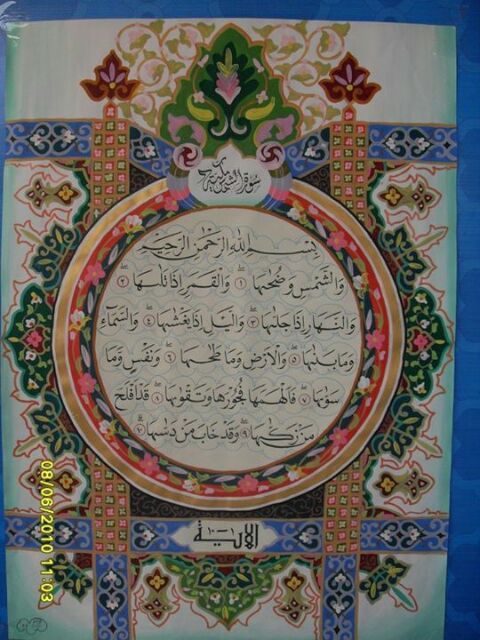 سورة الشمس مكية
بِسْمِ اللهِ الرَّحْمٰنِ الرَّحِيْمِ
وَالشَّمْسِ وَضُحٰىهَا ١ وَالْقَمَرِ اِذَا تَلٰىهَا ٢
وَالنَّهَارِ اِذَا جَلّٰىهَا ٣ وَالَّيْلِ اِذَا يَغْشٰىهَا ٤ وَالسَّمَآءِ
وَمَا بَنٰىهَا ٥ وَالْاَرْضِ وَمَا طَحٰىهَا ٦ وَنَفْسٍ وَمَا
سَوّٰىهَا ٧ فَاَلْهَمَهَا فُجُوْرَهَا وَتَقْوٰىهَا ٨ قَدْ اَفْلَحَ
مَنْ زَكّٰىهَا ٩ وَقَدْ خَابَ مَنْ دَسّٰىهَا ١٠
الاية ١-١٠
08/06/2010 11:03